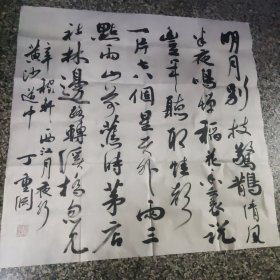 明月别枝驚鵲清風
半夜鳴蟬稻花香裏説
豐年聽取蛙聲
一片七八個星天外兩三
點雨山前舊時茅店
社林邊路轉溪橋忽見
辛稼軒西江月夜行
黄沙道中
丁